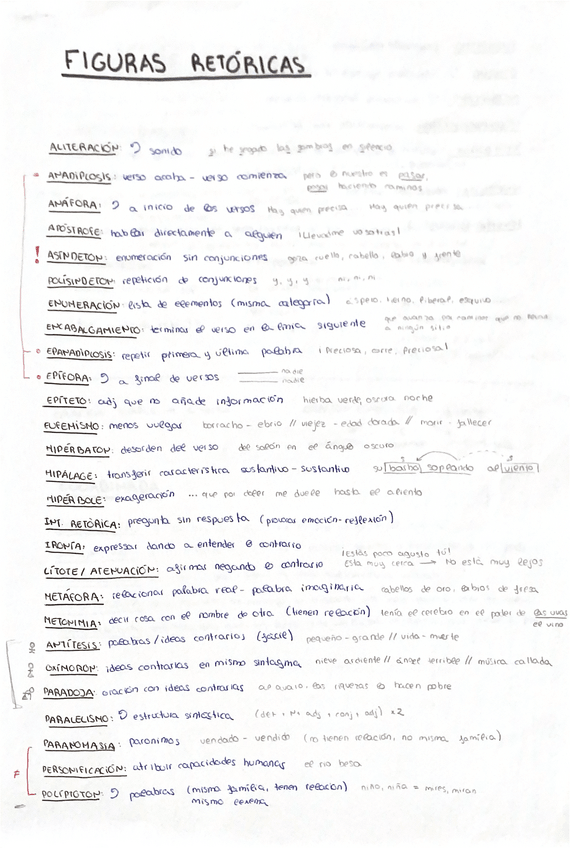 FIGURAS RETÓRICAS
ALITERACIÓN: sonido en silencio
ANADIPLOSIS: verso acaba - verso comienza pero lo nuestro es pasar,
pasar haciendo caminos
ANÁFORA: a inicio de los versos Hay quien precisa Hay quien precisa
APÓSTROFE: hablar directamente a alguien ¡Llevadme vosotras!
! ASÍNDETON: enumeración sin conjunciones cuello, cabello, labio y frente
POLISÍNDETON: repetición de conjunciones y, y, y ni, ni, ni
ENUMERACIÓN: lista de elementos (misma categoría) áspero, tierno, liberal, esquivo
ENCABALGAMIENTO: terminas el verso en la línea siguiente
a ningún sitio
EPANADIPLOSIS: repetir primera y última palabra ¡Preciosa, corre, Preciosa!
EPÍFORA: a final de versos nadie
nadie
EPÍTETO: adj que no añade información hierba verde, oscura noche
EUFEMISMO: menos vulgar borracho - ebrio // vejez - edad dorada // morir - fallecer
HIPÉRBATON: desorden del verso del salón en el ángulo oscuro
HIPÁLAGE: transferir característica sustantivo - sustantivo su barba soplando al viento
HIPÉRBOLE: exageración ... que por doler me duele hasta el aliento
INT. RETÓRICA: pregunta sin respuesta (provocar emoción - reflexión)
IRONÍA: expresar dando a entender lo contrario
¡estás poco agusto tú!
LÍTOTE / ATENUACIÓN: afirmar negando lo contrario Está muy cerca → No está muy lejos
METÁFORA: relacionar palabra real - palabra imaginaria cabellos de oro, labios de fresa
METONIMIA: decir cosa con el nombre de otra (tienen relación) tenía el cerebro en el paladar de las uvas
el vino
ANTÍTESIS: palabras/ideas contrarias (fácil) pequeño - grande // vida - muerte
OXÍMORON: ideas contrarias en mismo sintagma nieve ardiente // ángel terrible // música callada
PARADOJA: oración con ideas contrarias al avaro, las riquezas lo hacen pobre
PARALELISMO: estructura sintáctica (det + N + adj + conj + adj) x2
PARANOMASIA: parónimos vendado - vendido (no tienen relación, no misma familia)
PERSONIFICACIÓN: atribuir capacidades humanas el río besa
POLÍPTOTON: palabras (misma familia, tienen relación) niño, niña = mires, miran
mismo lexema